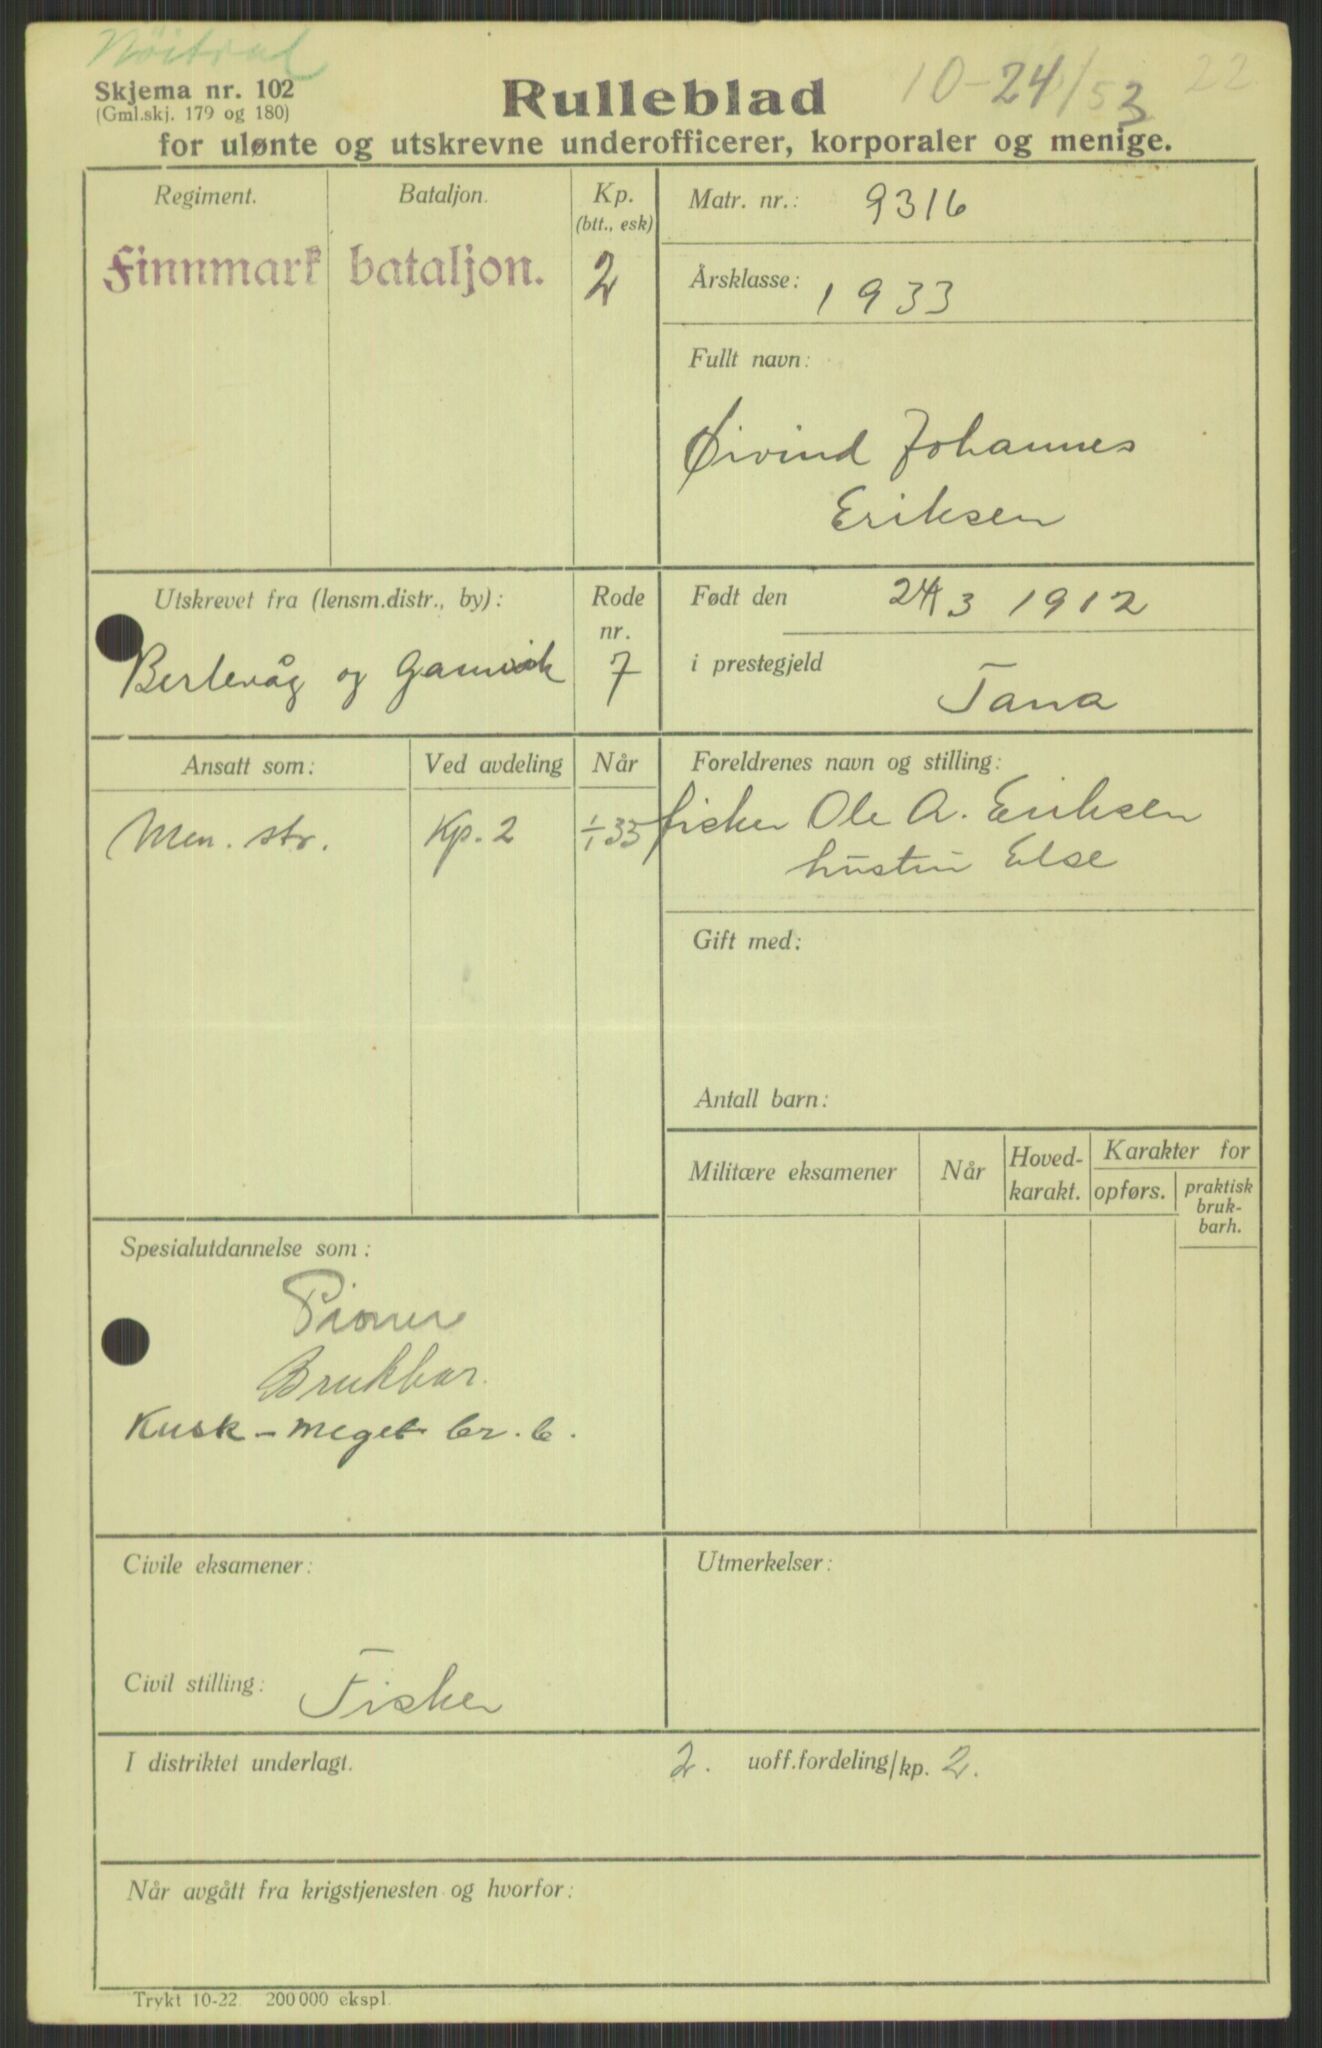 Nöitral
10-24/53 22
Skjema nr. 102
(Gml.skj. 179 og 180)
Rulleblad
for ulønte og utskrevne underofficerer, korporaler og menige.
Regiment. Bataljon. Kp.
(btt., esk)
Finnmark bataljon. 2
Matr. nr.: 9316
Årsklasse: 1933
Fullt navn:
Øivind Johannes
Eriksen
Utskrevet fra (lensm.distr., by): Rode
nr.
Berlevåg og Gamvik 7
Født den 24/3 1912
i prestegjeld Tana
Ansatt som: Ved avdeling Når
Men. str. Kp. 2 1/1 33
Foreldrenes navn og stilling:
fisker Ole A. Eriksen
hustru Else
Gift med:
Antall barn:
Militære eksamener Når Hoved-
karakt. Karakter for
opførs. praktisk
bruk-
barh.
Spesialutdannelse som:
Pioner
Brukbar.
Kusk – meget br. b.
Civile eksamener:
Civil stilling: Fisker
Utmerkelser:
I distriktet underlagt. 2. uoff.fordeling/kp. 2.
Når avgått fra krigstjenesten og hvorfor:
Trykt 10-22. 200 000 ekspl.